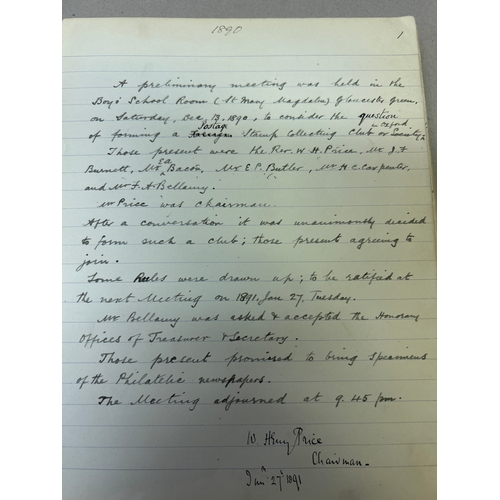 1890
1
A preliminary meeting was held in the
Boys' School Room (St Mary Magdalen) Gloucester Green,
on Saturday, Dec 13. 1890, to consider the question
of forming a Stamp Collecting Club or Society in Oxford.
Those present were the Rev. W. H. Price, Mr J. F
Burnett, Mr E A Bacon, Mr E. P. Butler, Mr H. C. Carpenter,
and Mr F. A. Bellamy.
Mr Price was chairman.
After a conversation it was unanimously decided
to form such a club; those present agreeing to
join.
Some Rules were drawn up; to be ratified at
the next Meeting on 1891. Jan 27, Tuesday.
Mr Bellamy was asked & accepted the Honorary
Offices of Treasurer & Secretary.
Those present promised to bring specimens
of the Philatelic newspapers.
The Meeting adjourned at 9.45 pm.
W Henry Price
Chairman.
Jan 27 1891